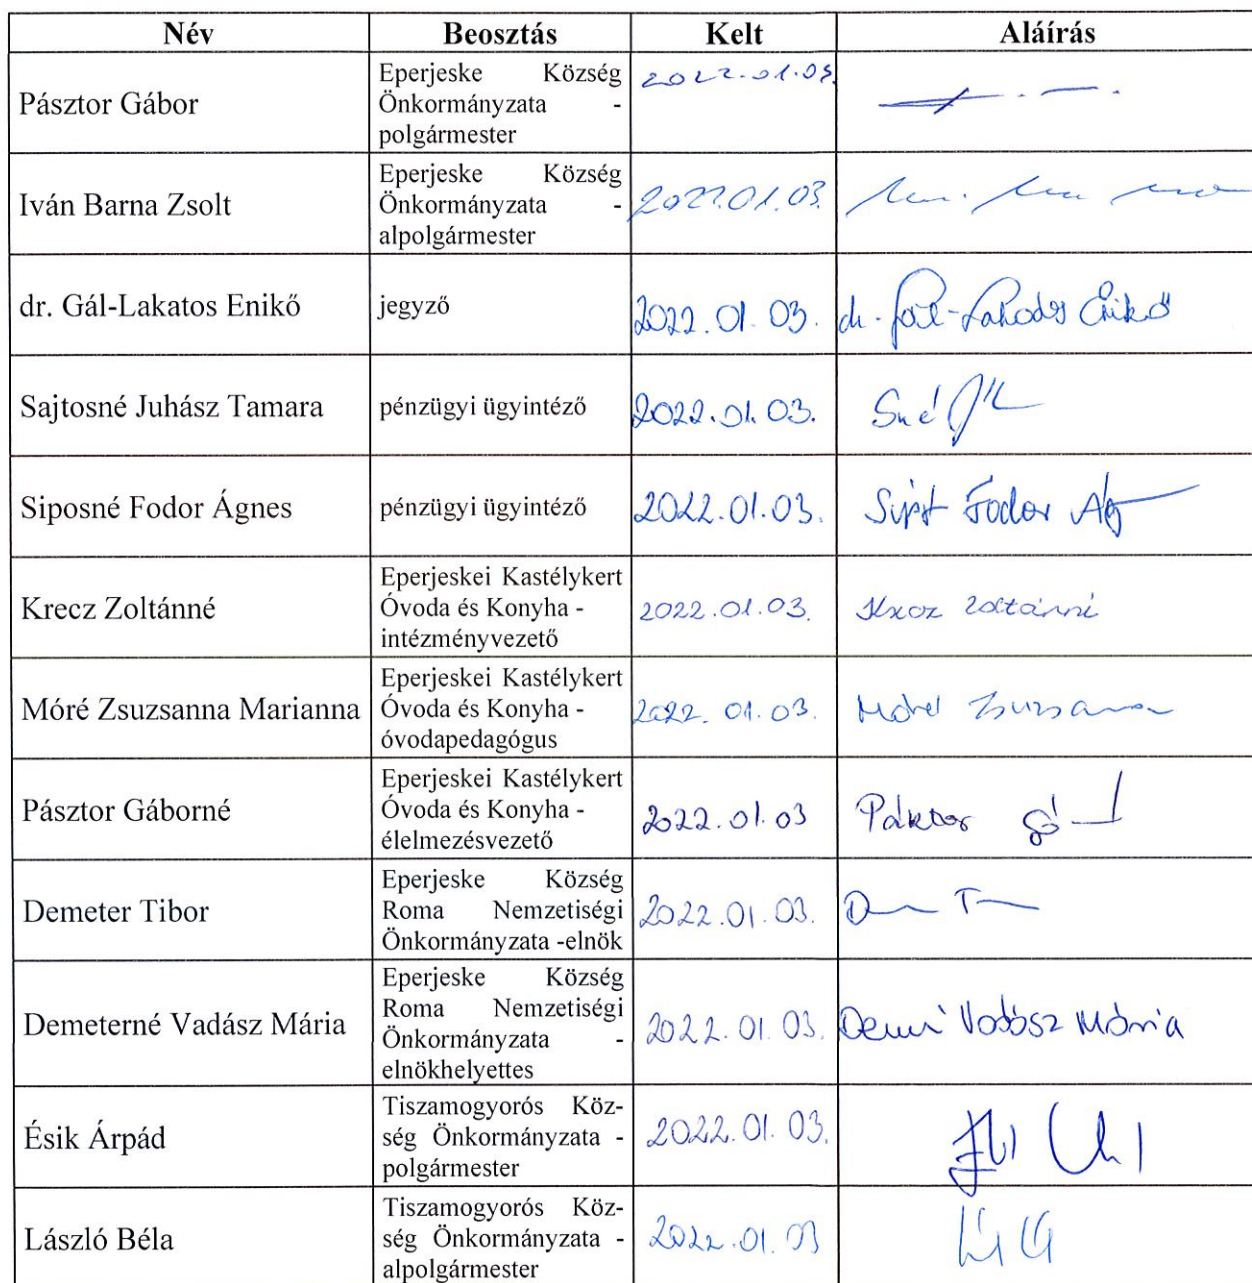 Név Beosztás Kelt Aláírás
Pásztor Gábor
Eperjeske Község
Önkormányzata -
polgármester
2022.01.03.
Iván Barna Zsolt
Eperjeske Község
Önkormányzata -
alpolgármester
2022.01.03.
dr. Gál-Lakatos Enikő
jegyző
2022.01.03.
dr. Gál-Lakatos Enikő
Sajtosné Juhász Tamara
pénzügyi ügyintéző
2022.01.03.
Siposné Fodor Ágnes
pénzügyi ügyintéző
2022.01.03.
Fodor Ág
Krecz Zoltánné
Eperjeskei Kastélykert
Óvoda és Konyha -
intézményvezető
2022.01.03.
Krecz Zoltánné
Móré Zsuzsanna Marianna
Eperjeskei Kastélykert
Óvoda és Konyha -
óvodapedagógus
2022.01.03.
Móré Zsuzsanna
Pásztor Gáborné
Eperjeskei Kastélykert
Óvoda és Konyha -
élelmezésvezető
2022.01.03
Pásztor
Demeter Tibor
Eperjeske Község
Roma Nemzetiségi
Önkormányzata -elnök
2022.01.03.
Demeterné Vadász Mária
Eperjeske Község
Roma Nemzetiségi
Önkormányzata -
elnökhelyettes
2022.01.03.
Demné Vadász Mária
Ésik Árpád
Tiszamogyorós Köz-
ség Önkormányzata -
polgármester
2022.01.03.
László Béla
Tiszamogyorós Köz-
ség Önkormányzata -
alpolgármester
2022.01.03